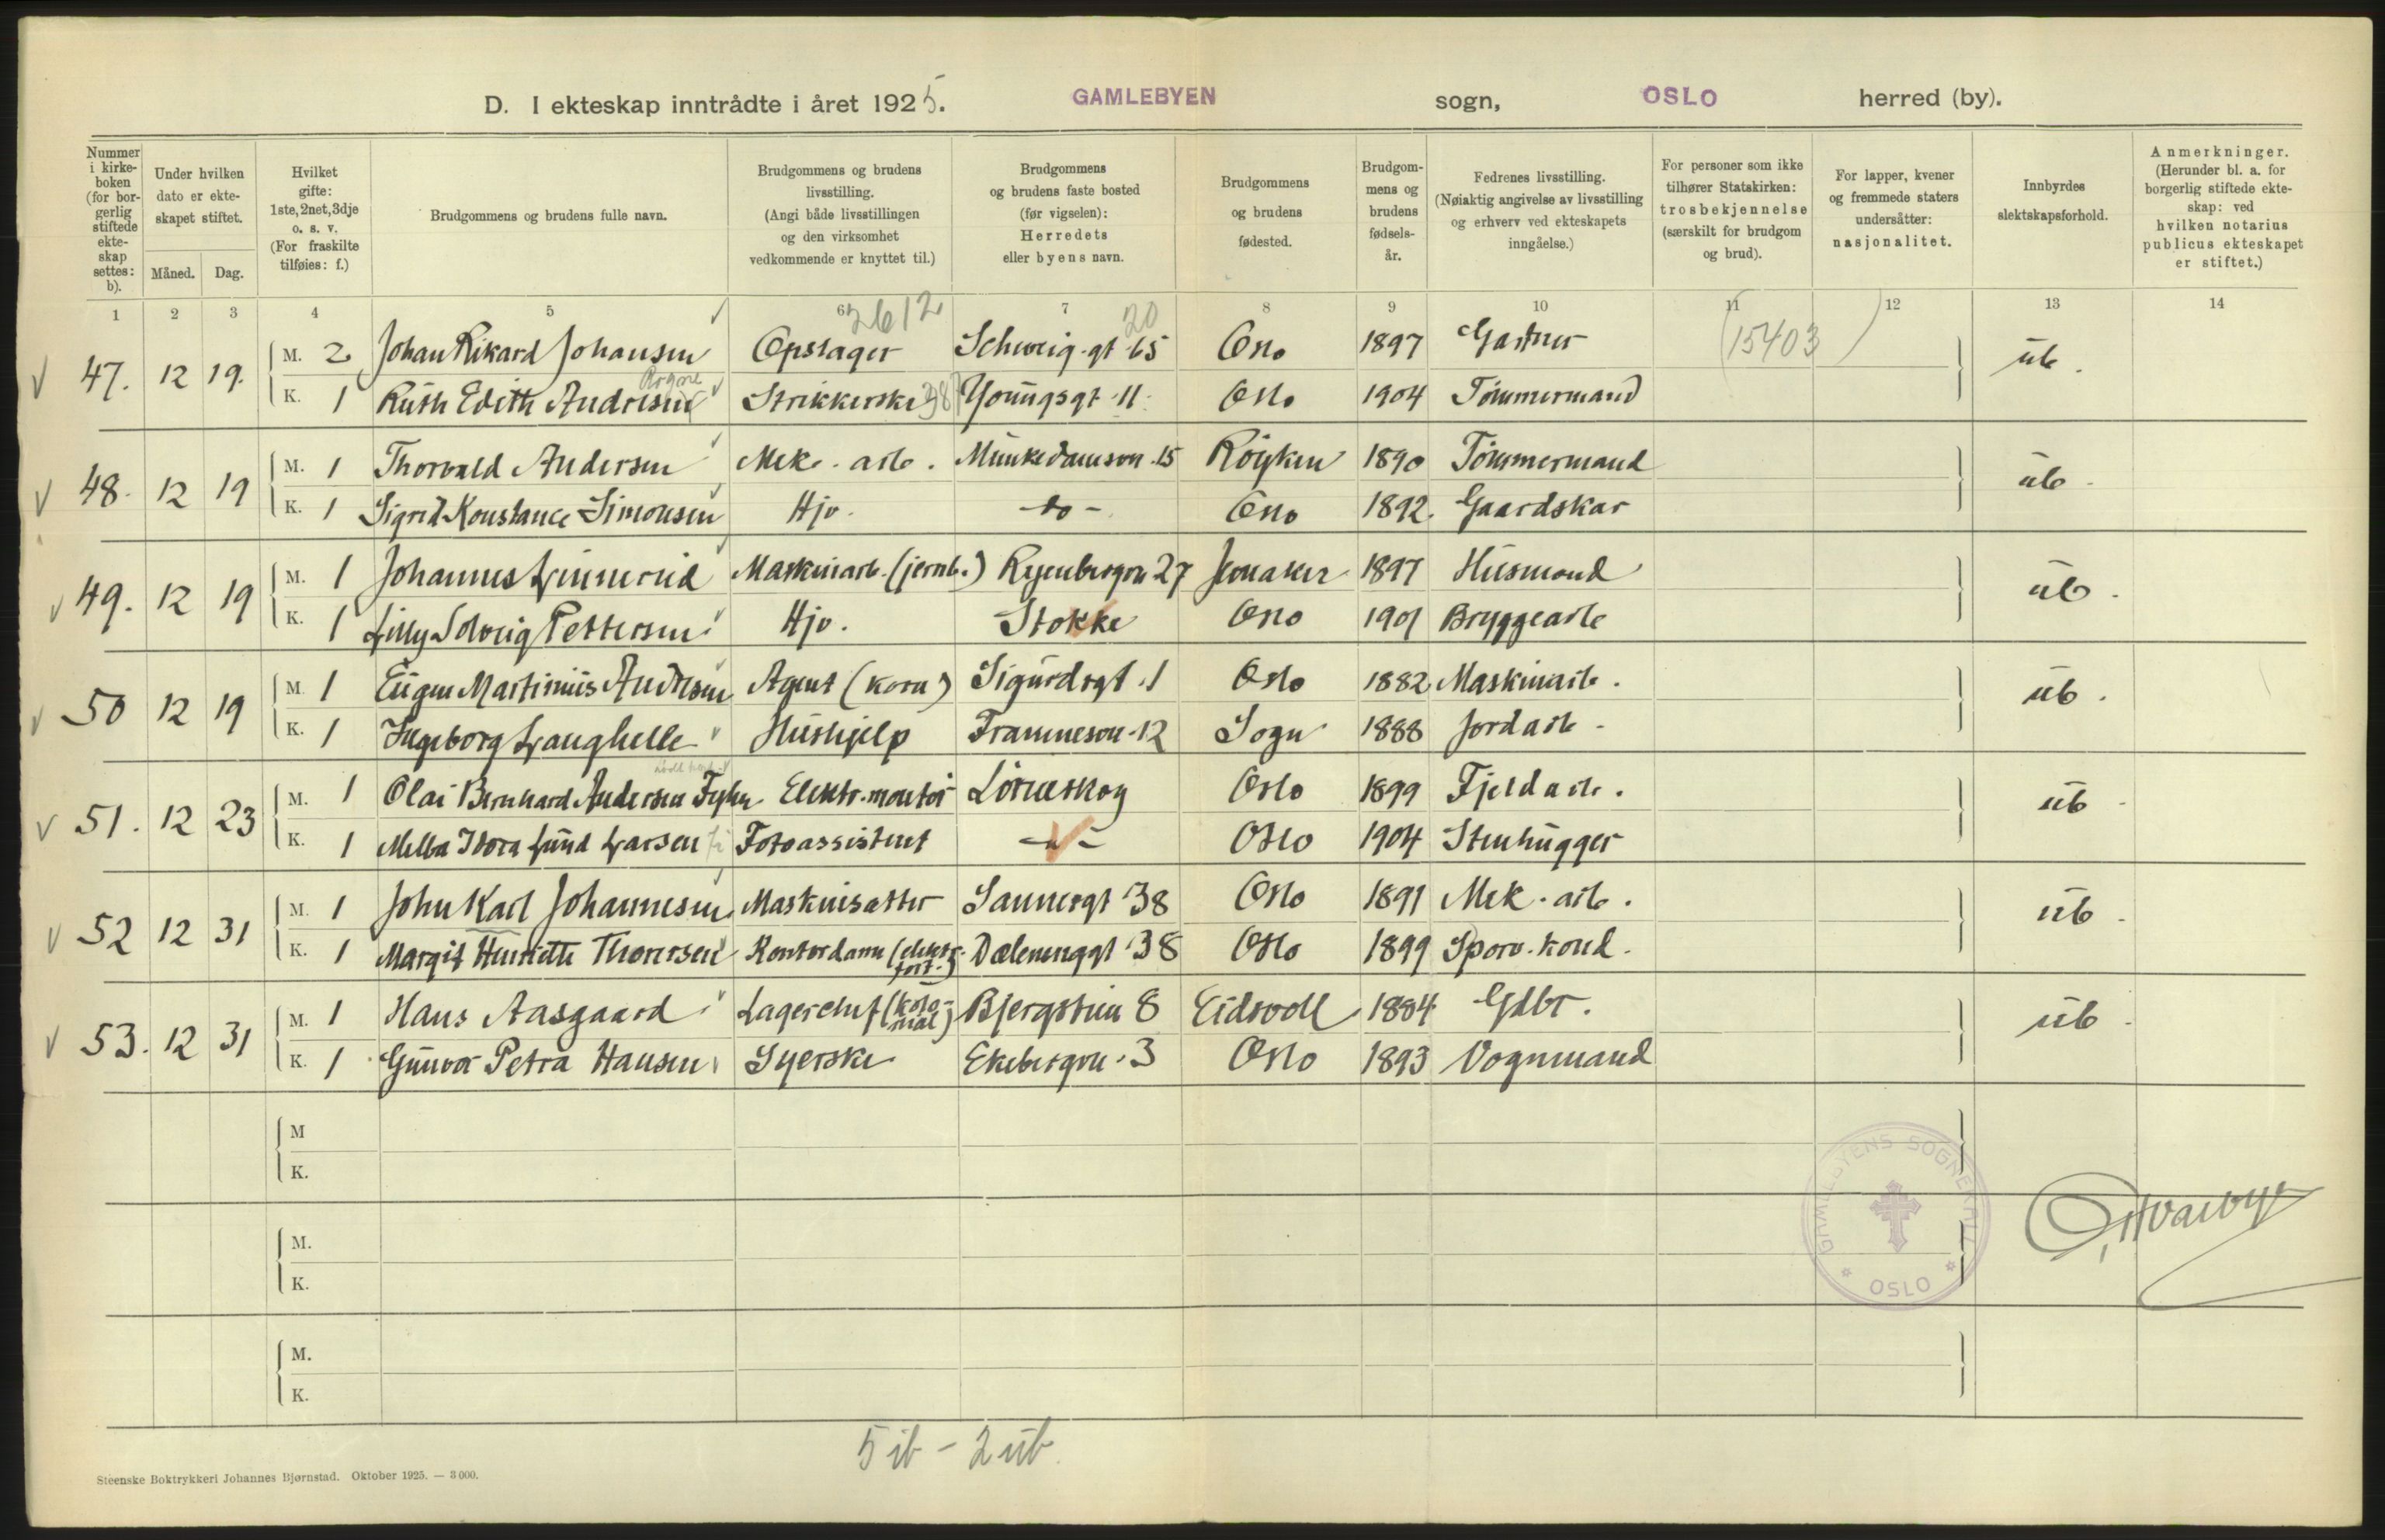 D. I ekteskap inntrådte i året 1925. GAMLEBYEN sogn, OSLO herred (by).
Nummer i kirke- boken (for bor- gerlig stiftede ekte- skap settes: b).
Under hvilken dato er ekte- skapet stiftet.
Måned. Dag.
Hvilket gifte: 1ste, 2net, 3dje o. s. v. (For fraskilte tilføies: f.)
Brudgommens og brudens fulle navn.
Brudgommens og brudens livsstilling. (Angi både livsstillingen og den virksomhet vedkommende er knyttet til.)
Brudgommens og brudens faste bosted (før vigselen): Herredets eller byens navn.
Brudgommens og brudens fødested.
Brudgom- mens og brudens fødsels- år.
Fedrenes livsstilling. (Nøiaktig angivelse av livsstilling og erhverv ved ekteskapets inngåelse.)
For personer som ikke tilhører Statskirken: trosbekjennelse (særskilt for brudgom og brud).
For lapper, kvener og fremmede staters undersåtter: nasjonalitet.
Innbyrdes slektskapsforhold.
Anmerkninger. (Herunder bl. a. for borgerlig stiftede ekte- skap: ved hvilken notarius publicus ekteskapet er stiftet.)
1 2 3 4 5 6 7 8 9 10 11 12 13 14
2612 20 (15403)
47. 12 19. M. 2 Johan Rikard Johansen Opsager Schweig.gt 65 Oslo 1897 Gartner üb.
K. 1 Ruth Edith Andresen Strikkerske Youngsgt 11 Oslo 1904 Tømmermand
48. 12 19 M. 1 Thorvald Andersen Mek. arb. Munkedamsvn. 15 Røyken 1890 Tømmermand üb.
K. 1 Sigrid Konstance Simonsen Hjv. -do- Oslo 1892. Gaardskar
49. 12 19 M. 1 Johannes Linnerud Maskinarb. (jernb.) Ryenbergvn 27 Jevnaker 1897 Husmand üb.
K. 1 Lilly Solveig Pettersen Hjv. Stokke Oslo 1901 Bryggearb
50 12 19 M. 1 Eugen Martinius Andresen Agent (korn) Sigurdsgt. 1 Oslo 1882 Maskinarb. üb.
K. 1 Ingeborg Langhelle Hushjelp Framnesvn. 12 Sogn 1888 Jordarb.
51. 12 23 M. 1 Olai Bernhard Andersen Elektr. montør Lørenskog Oslo 1899 Fjeldarb. üb.
K. 1 Melba Thora Lund Larsen Fotoassistent -"- Oslo 1904 Stenhugger
52 12 31 M. 1 John Karl Johannesen Maskinsætter Sannergt 38 Oslo 1891 Mek. arb. üb.
K. 1 Margit Henriette Thoresen Kontordame (elektr. forr.) Dælenenggt 38 Oslo 1899 Sporv. kond.
53. 12 31 M. 1 Hans Aasgaard Lagerchef (kolo- nial) Bjergstien 8 Eidsvoll 1884 Gdbr. üb.
K. 1 Gunvor Petra Hansen Syerske Ekebergvn. 3 Oslo 1893 Vognmand
M
K.
M.
K.
M.
K.
GAMLEBYENS SOGNEKALL * OSLO *
5 ib - 2 üb.
Steenske Boktrykkeri Johannes Bjørnstad. Oktober 1925. — 3 000.